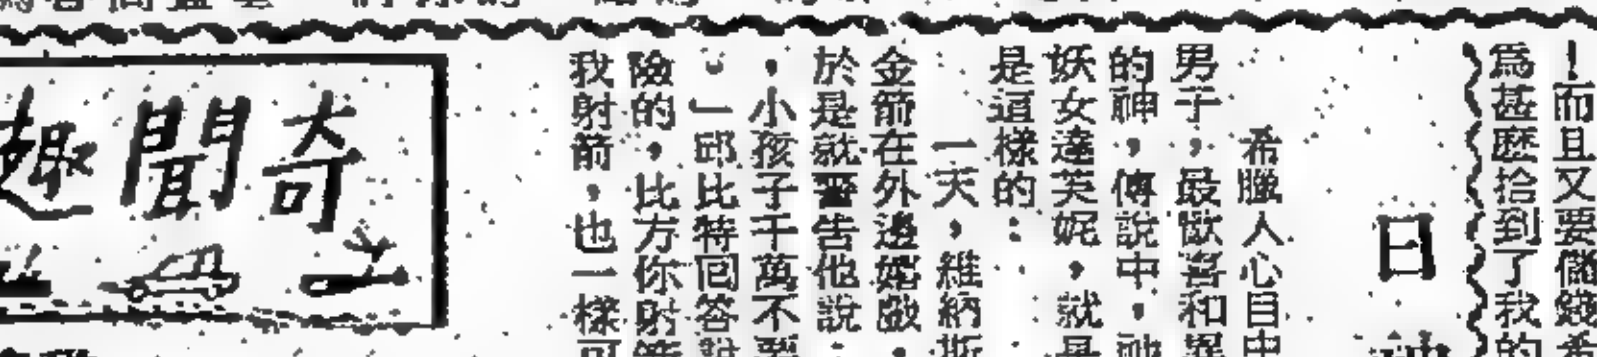 ！而且又要儲錢
爲甚麼拾到了我的
日
希臘人心目中
男子，最歡喜和
的神，傳說中，
妖女達芙妮，就是
是這樣的：
一天，維納斯
金箭在外邊嬉戲，
於是就警告他說：
，小孩子千萬不
。」邱比特回答
險的，比方你射
我射箭，也一樣可
奇聞趣